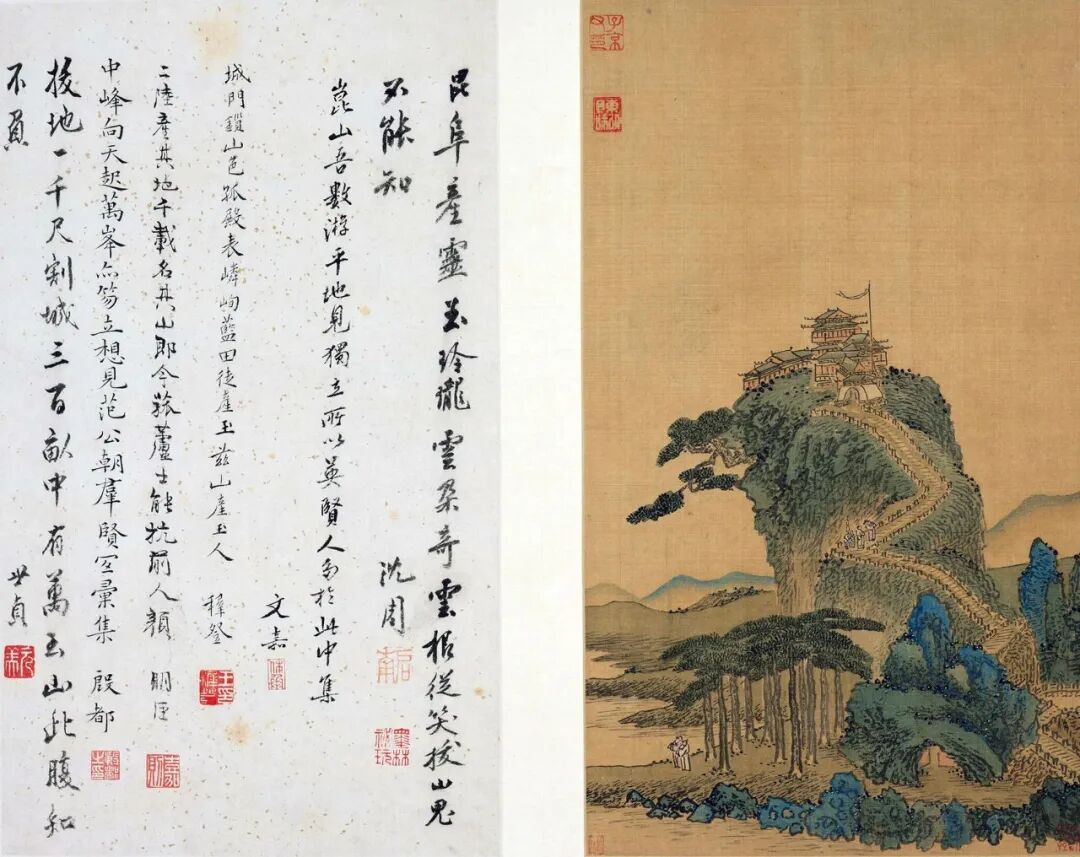 昆阜産靈玉玲瓏雲朵奇雲根從笑拔山鬼
不能知
沈周
崑山吾數游平地見獨立所以英賢人多於此中集
文嘉
城門鎻山邑孤殿表嶙峋藍田徒産玉茲山産玉人
穉登
二陸産其地千載名其山即今菰蘆士能抗前人顏
中峰向天起萬峯亦笏立想見范公朝羣賢寔彙集
殷都
拔地一千尺割城三百畝中有萬玉山此腹知
不負
世貞